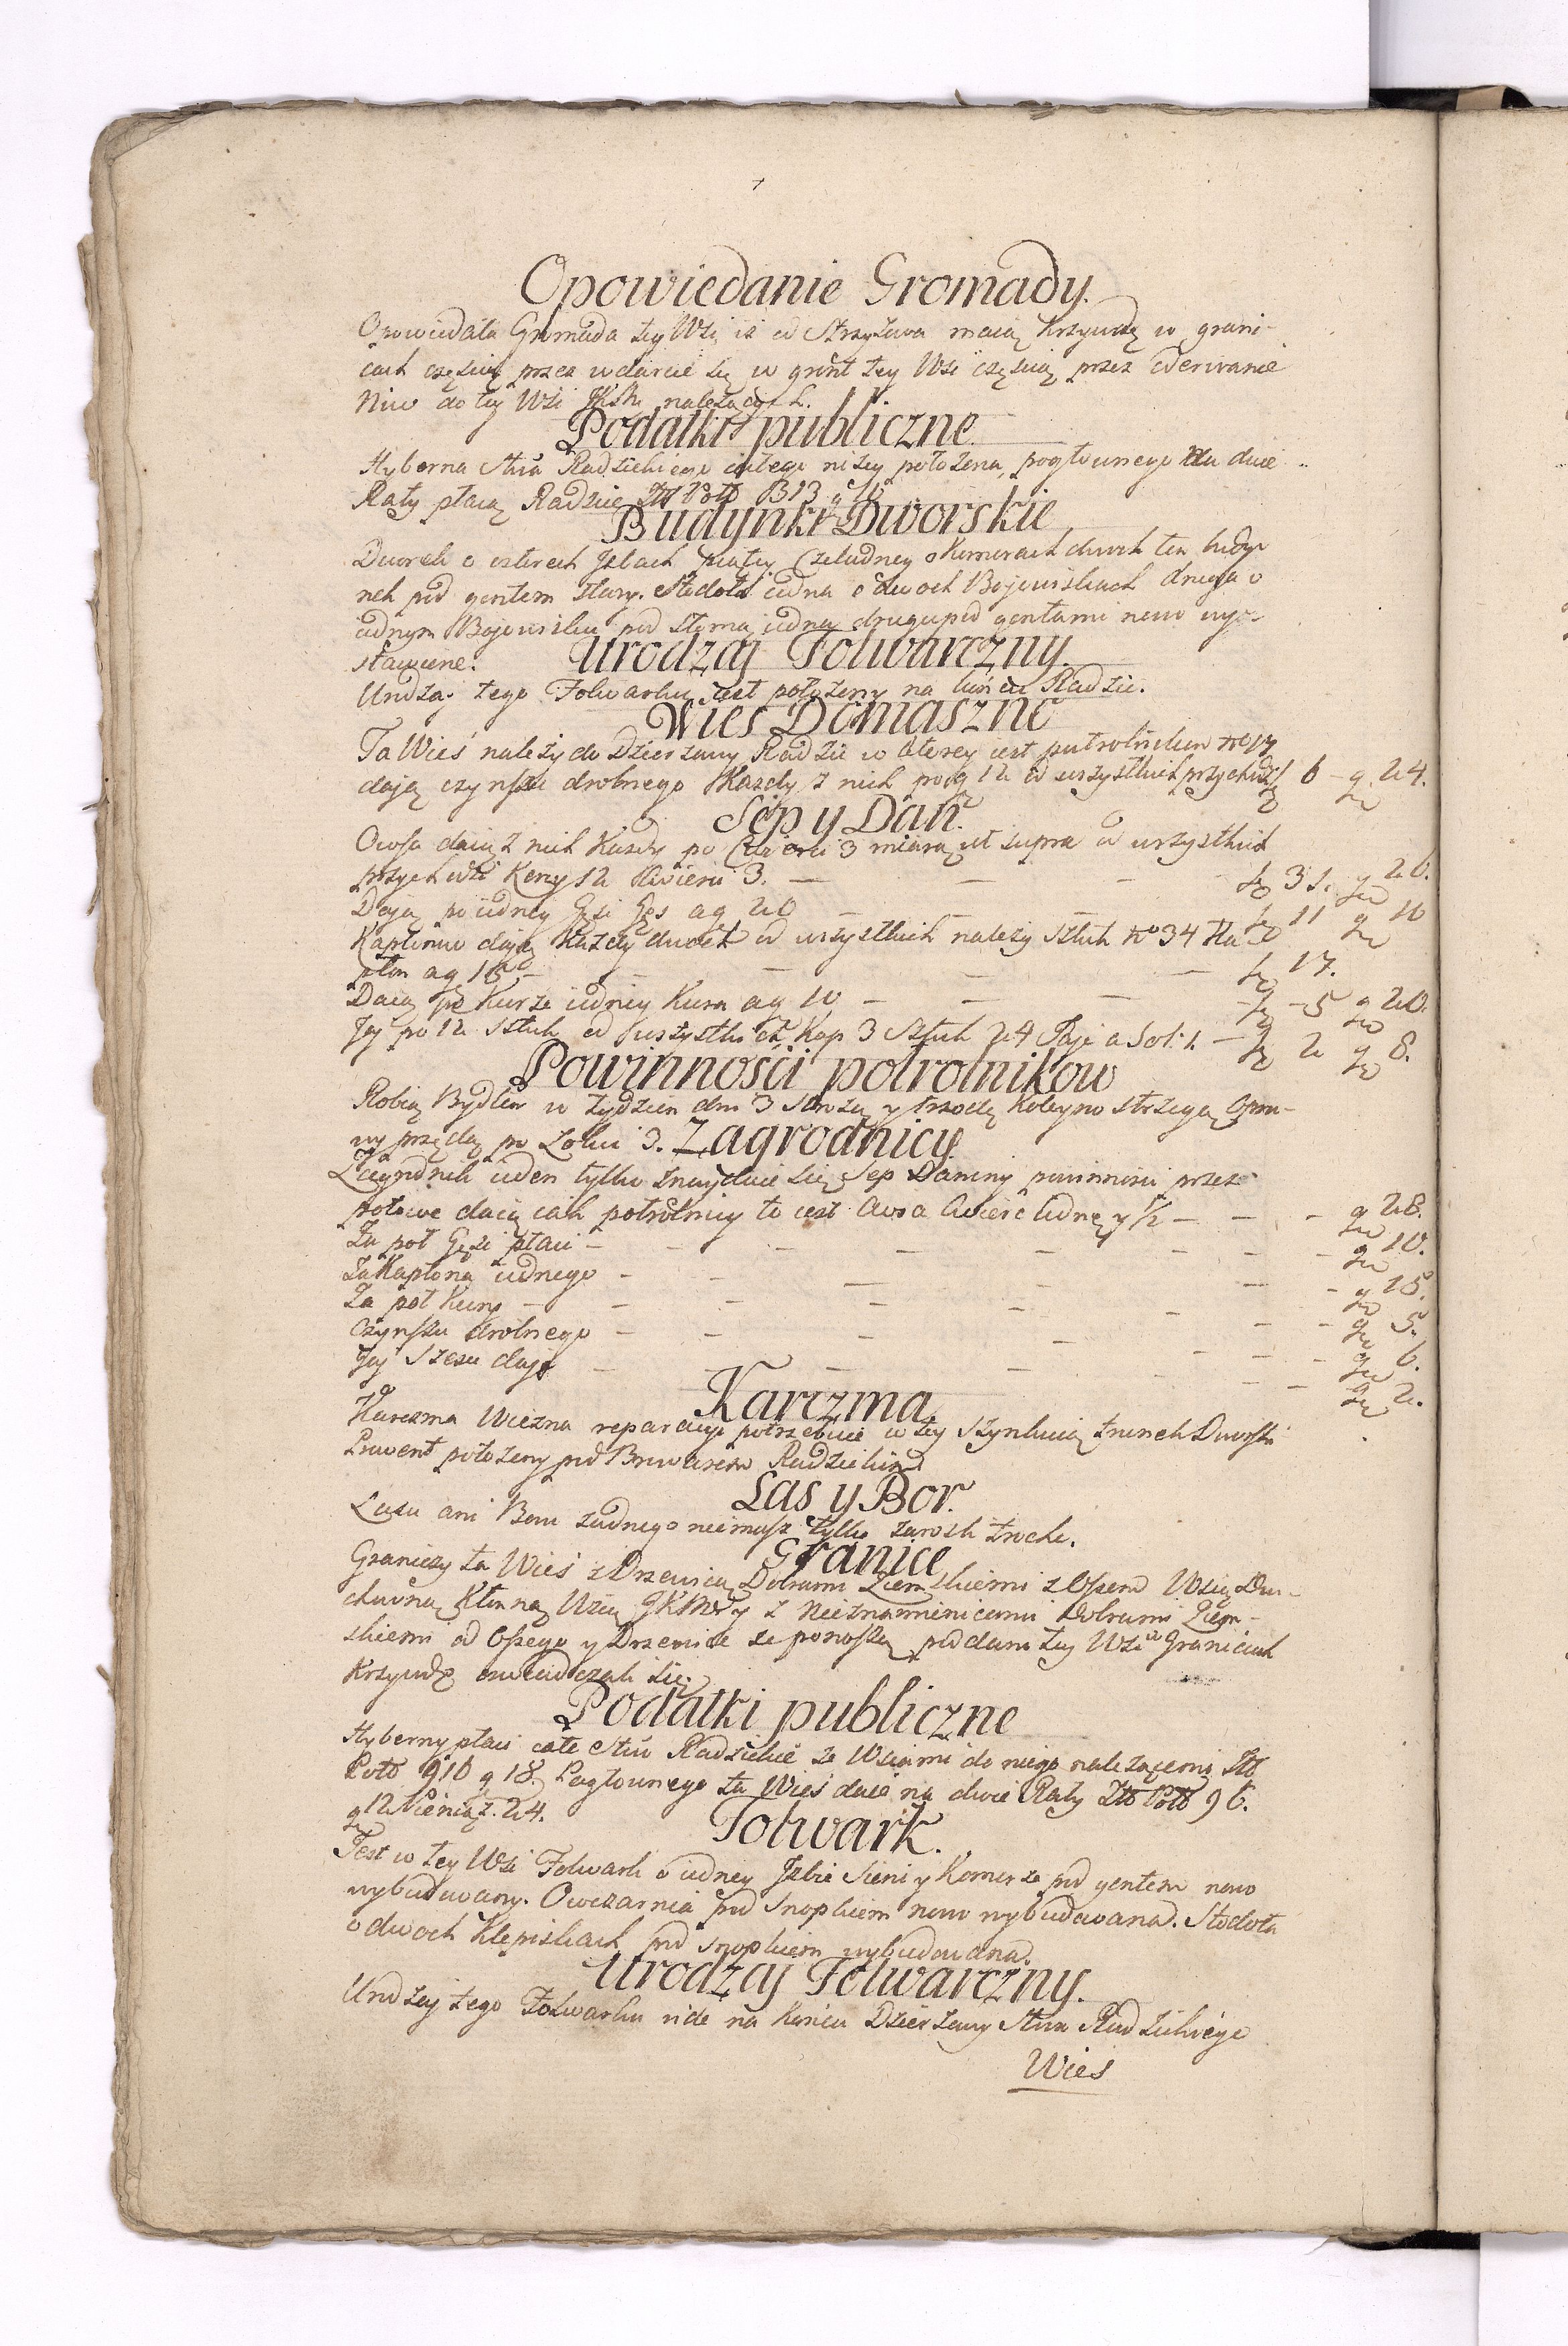 Opowiedanie Gromady.
Opowiedała Gromada tey Wsi, iz od Strzyżowa maią krzywdę w grani-
cach częścią przez wdarcie się w gront tey Wsi częścią przez oderwanie
Niw do tey Wsi JKMci należących.
Podatki publiczne
Hyberna Stwa Radzickiego całego niżey położona, pogłownego na dwie
Raty płacą Radzice Złł Poll 813 g 16
Budynki Dworskie
Dworek o czterech Izbach piątey Czeladney o Komorach dwuch ten budy-
nek pod gontem stary. Stodoła iedna o dwoch Bojowiskach druga o
iednym Bojowisku pod słomą iedna druga pod gontami nowo wy-
stawione.
Urodzaj Folwarczny.
Urodzaj tego Folwarku iest położony na końcu Radzic.
Wies Domaszno
Ta Wieś należy do Dzierzawy Radzic w ktorey iest putrolnikow No 17
dają czynszu drobnego Kazdy z nich po g 12 od wszystkich przychodzi f 6 - g 24.
Sep y Dań.
Owsa daią z nich Kazdy po Cwierci 3 miarą ut supra od wszystkich
przychodzi Korcy 12 Cwierci 3. — — — f 31. g 26.
Dają po iedney Gęsi Gęś a g 20 — — — f 11 g 10
Kapłonow dają Kazdy dwoch od wszystkich należy sztuk No 34 Ka-
płon a g 15 — — — — f 17.
Daią po Kurze iedney Kura a g 10 — — — f - 5 g 20.
Jaj po 12 sztuk od wszystkich Kop 3 Sztuk 24 Jaje a Sol: 1. — f 2 g 8.
Powinności potrolnikow
Robią Bydłem w tydzien dni 3 Strożą y trzodę koleyno strzegą Opra-
wy przędą po Łokci 3.
Zagrodnicy
Zagrodnik ieden tylko znayduie się, Sep Daniny powinności przez
połowe daią iak potrolnicy to iest Owsa Cwierć iedną y ½ — — — g 28.
Za poł Gęsi płaci — — — — — g 10.
Za Kapłona iednego — — — — — g 15.
Za poł Kury — — — — — g 5.
Czynszu drobnego — — — — — g 6.
Jaj Szesc daje — — — — — g 2.
Karczma
Karczma Wiezna reparacyi potrzebuie w tey szynkuią trunek Dworski
Prowent położony pod Browarem Radzickim
Las y Bor.
Lasu ani Boru zadnego niemasz tylko zarosli troche.
Granice
Graniczy ta Wies z Drzewicą Dobrami Ziemskiemi z Ossem Wsią Du-
chowną Kłonną Wsią JKMci y z Nieznamirowicami Dobrami Ziem-
skiemi od Ossego y Drzewice ze ponoszą poddani tey Wsi w Granicach
krzywdę oswiadczali się.
Podatki publiczne
Hyberny płaci całe Stwo Radzickie ze Wsiami do niego należącemi Złł
Poll 910 g 18. Pogłownego ta Wieś daie na dwie Raty Złł Poll 96.
g 12 Pieniąz: 24.
Folwark.
Jest w tey Wsi Folwark o iedney Izbie Sieni y Komorze pod gontem nowo
wybudowany. Owczarnia pod snopkiem nowo wybudowana. Stodoła
o dwoch Klepiskach pod snopkiem wybudowana.
Urodzaj Folwarczny.
Urodzaj tego Folwarku vide na końcu Dzierzawy Stwa Radzickiego
Wies